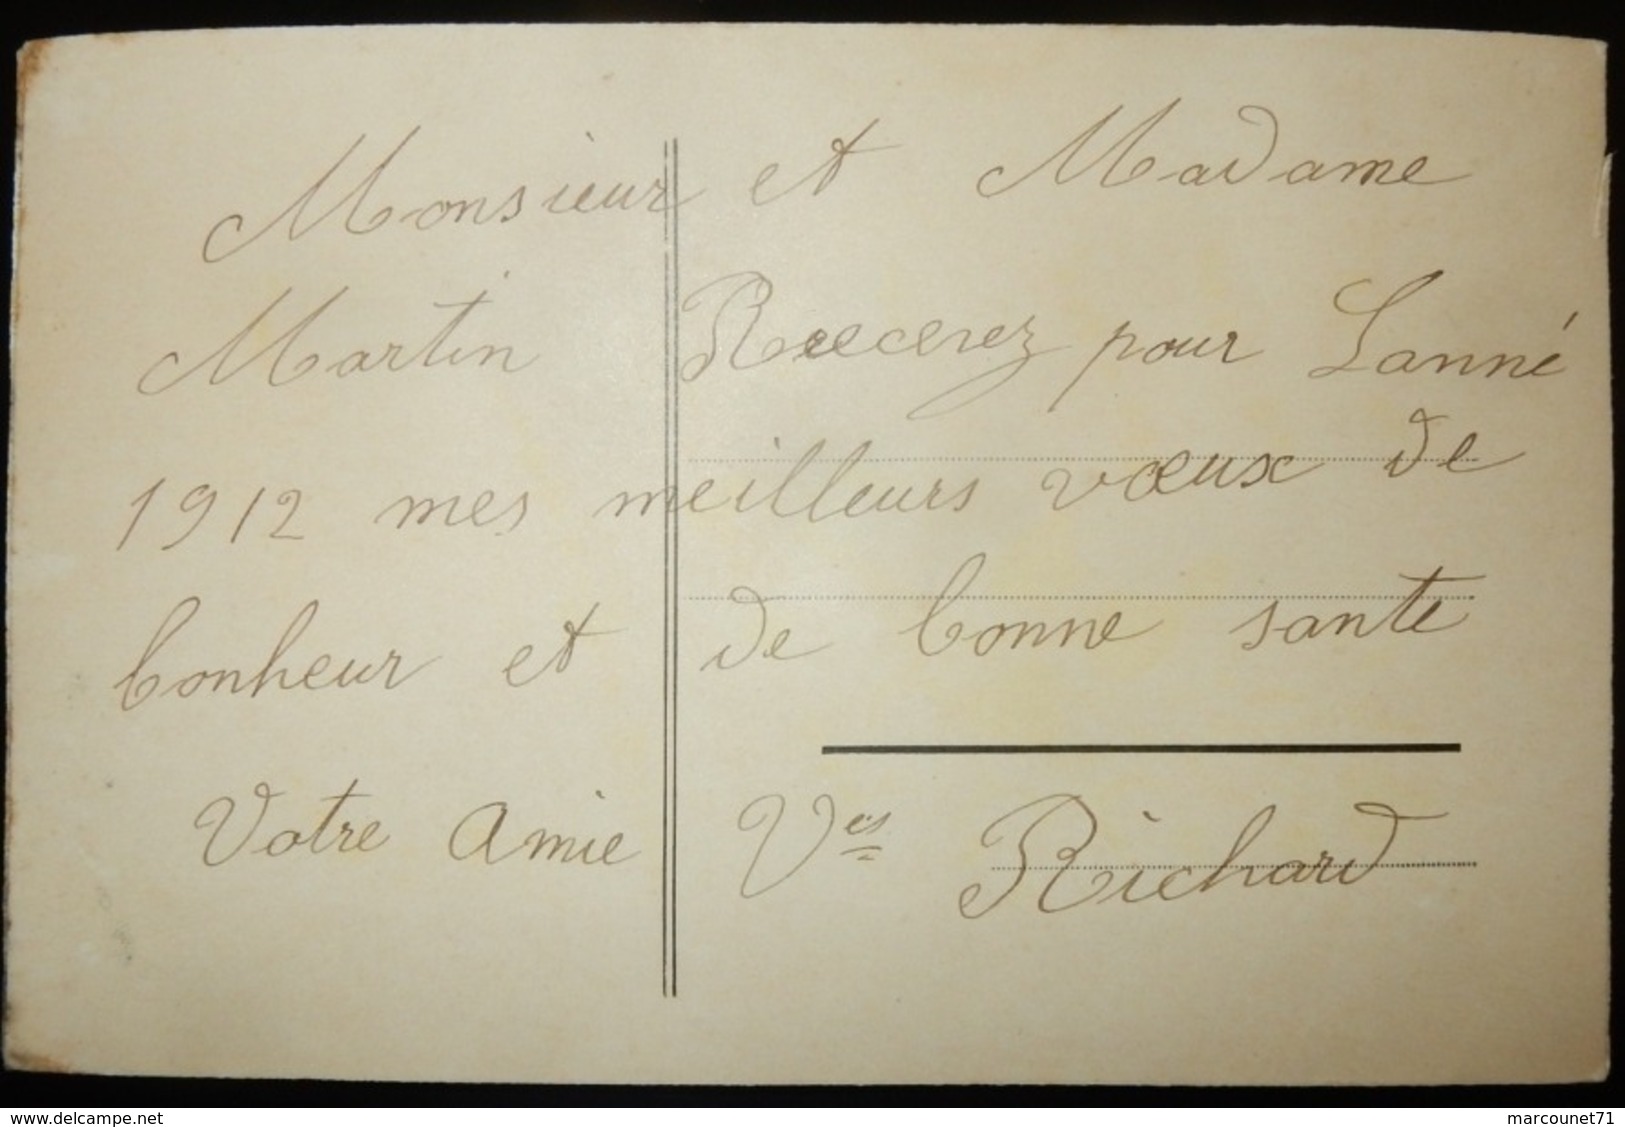 Monsieur et Madame
Martin Reecerez pour Lanné
1912 mes meilleurs vœux de
bonheur et de bonne sante
Votre Amie Ves Richard
www.delcampe.net
marcounet71